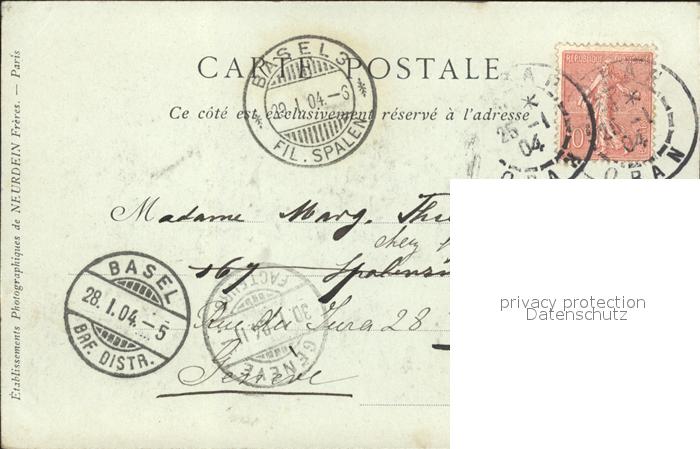 CARTE POSTALE
Ce côté est exclusivement réservé à l'adresse
RÉPUBLIQUE FRANÇAISE
10
25 -1
04
ORAN
BASEL 3
I. 04.
FIL. SPALEN
Madame Marg.
chez
167
Rue du Jura 28
Genève
BASEL
28. I. 04. -5
BRF. DISTR.
30. I
FACTEUR
GENÈVE
Établissements Photographiques de NEURDEIN Frères. — Paris
privacy protection
Datenschutz